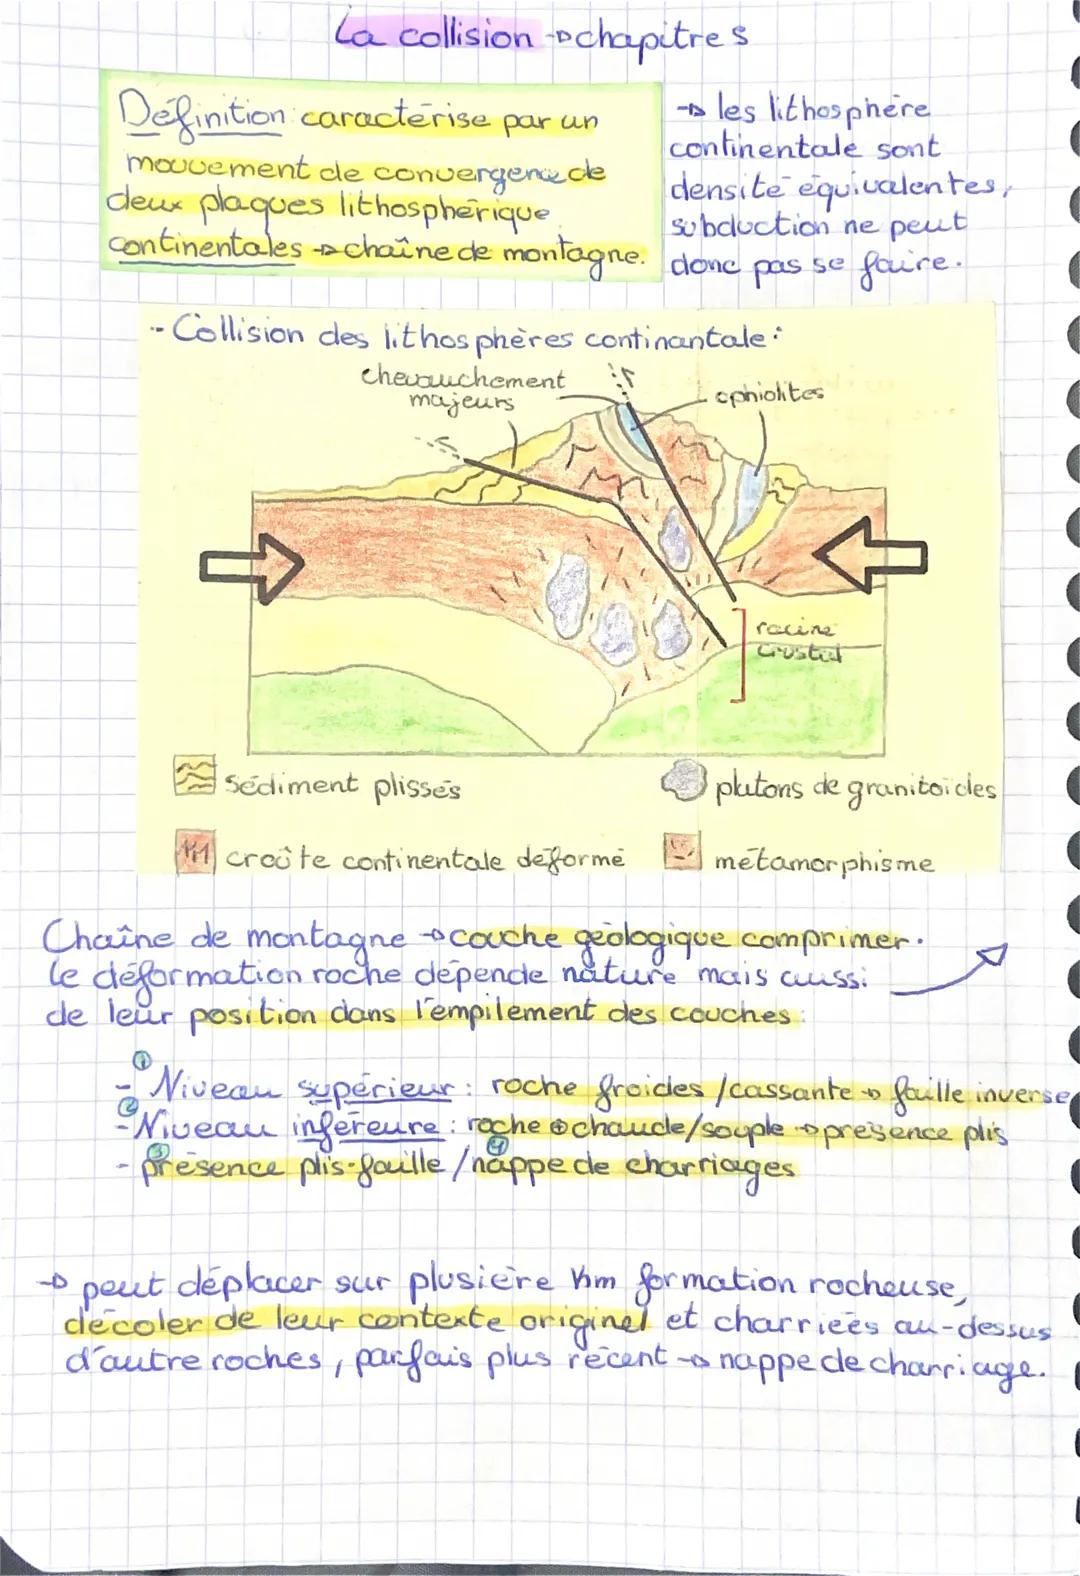 La collision → chapitre 5
Définition : caractérise par un
mouvement de convergence de
deux plaques lithosphérique
continentales → chaîne de montagne.
→ les lithosphère
continentale sont
densité équivalentes,
subduction ne peut
donc pas se faire.
- Collision des lithosphères continantale :
chevauchement
majeurs
ophiolites
racine
crustal
sédiment plissés
plutons de granitoïdes
croûte continentale déformé
métamorphisme
Chaîne de montagne → couche géologique comprimer.
le déformation roche dépende nature mais aussi
de leur position dans l'empilement des couches :
①
- Niveau supérieur : roche froides / cassante → faille inverse
②
- Niveau inféreure : roche ⊕ chaude/souple → présence plis
③ ④
- présence plis-faille / nappe de charriages
→ peut déplacer sur plusière Km formation rocheuse,
décoler de leur contexte originel et charriées au-dessus
d'autre roches, parfais plus récent → nappe de charriage.